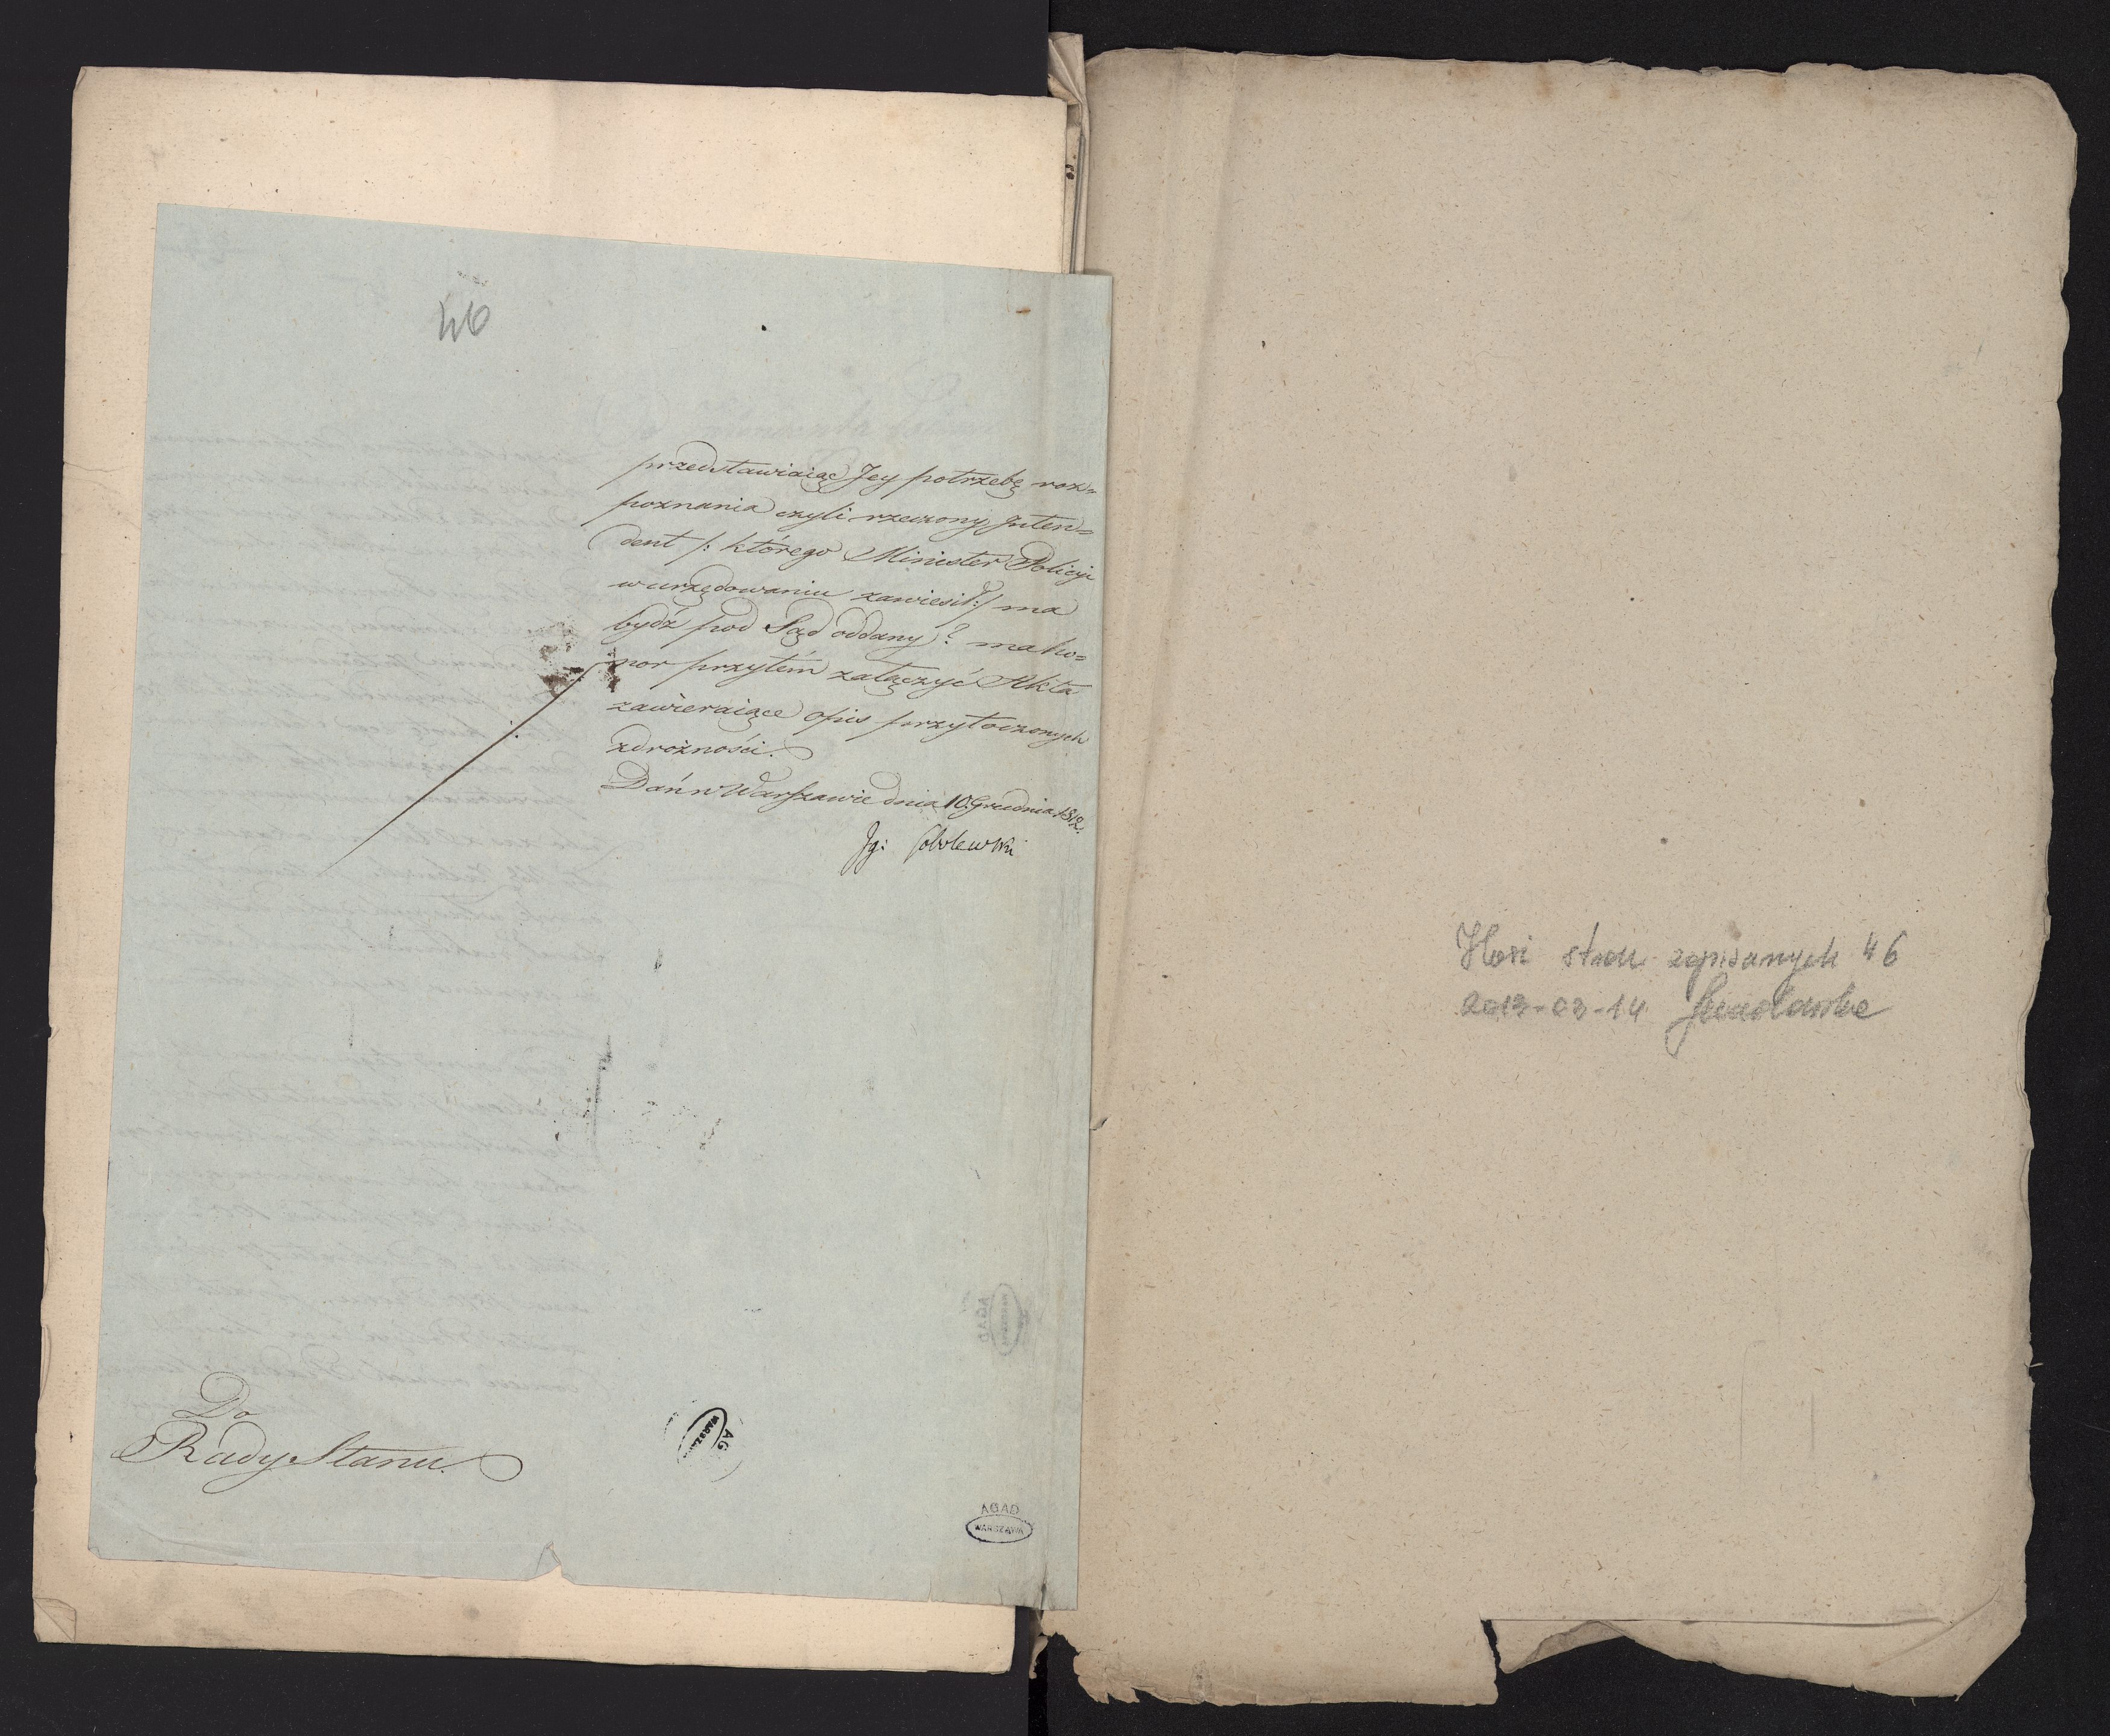 46
przedstawiaiąc Jey potrzebę roz=
poznania czyli rzeczony Inten=
dent /: którego Minister Policyi
w urzędowaniu zawiesił :/ ma
bydź pod Sąd oddany? ma ho=
nor przytém załączyć Akta
zawieraiące opis przytoczonych
zdrożności.
Dań w Warszawie dnia 10 Grudnia 1812.
Ig: Sobolewski
Do
Rady Stanu.
AG
WARSZAWA
AGAD
WARSZAWA
AGAD
WARSZAWA
stron zapisanych 46
2013-03-14